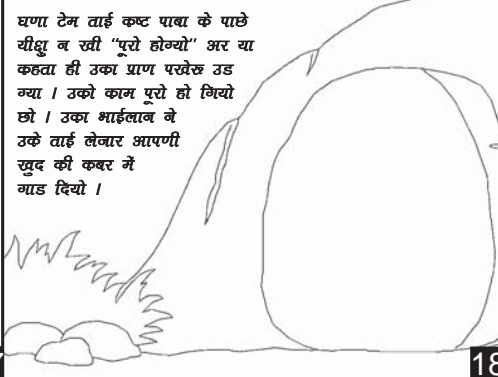 घणा टेम ताई कष्ट पाबा के पाछे
यीक्षु न खी "पूरो होग्यो" अर या
कहता ही उका प्राण पखेरू उड
ग्या । उको काम पूरो हो गियो
छो । उका भाईलान ने
उके ताई लेजार आपणी
खुद की कबर में
गाड दियो ।
18